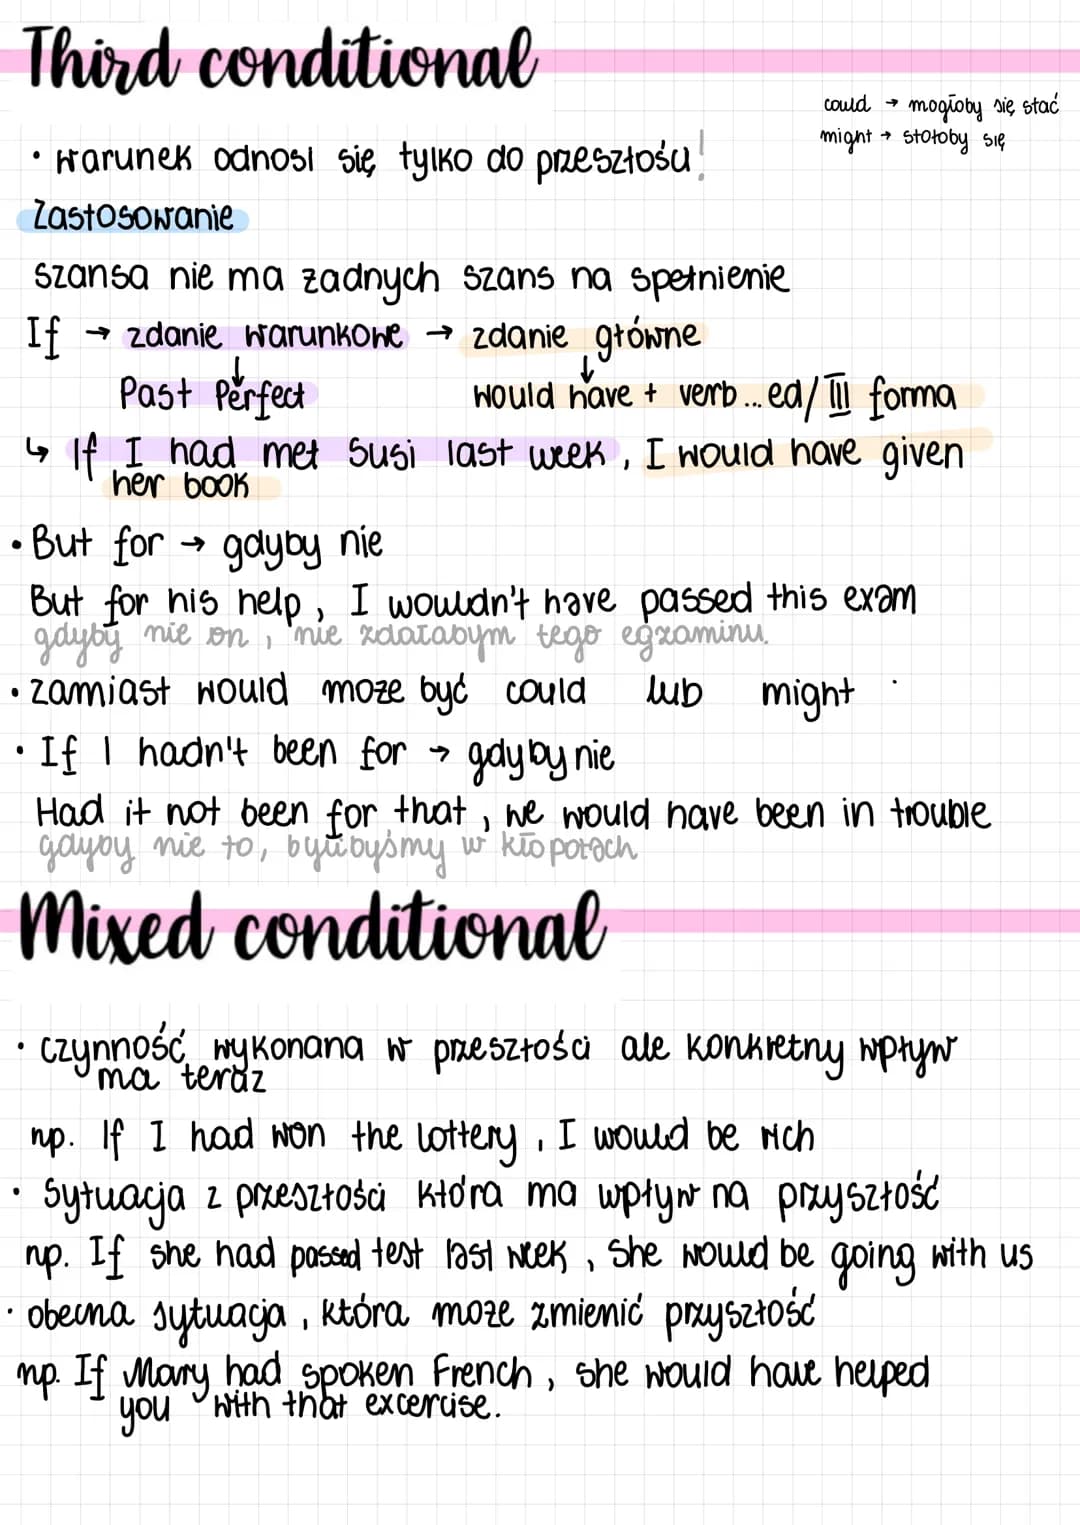 Third conditional
could → mogłoby się stać
might → stołoby się
• warunek odnosi się tylko do przeszłości!
Zastosowanie
szansa nie ma żadnych szans na spełnienie
If → zdanie warunkowe → zdanie główne
Past Perfect would have + verb...ed/III forma
↳ If I had met Susi last week, I would have given
her book
• But for → gdyby nie
But for his help, I wouldn't have passed this exam
gdyby nie on, nie zdałabym tego egzaminu.
• zamiast would może być could lub might
• If I hadn't been for → gdyby nie
Had it not been for that, we would have been in trouble
gdyby nie to, bylibyśmy w kłopotach
Mixed conditional
• czynność wykonana w przeszłości ale konkretny wpływ
ma teraz
np. If I had won the lottery, I would be rich
• Sytuacja z przeszłości która ma wpływ na przyszłość
np. If she had passed test last week, she would be going with us
• obecna sytuacja, która może zmienić przyszłość
np. If Mary had spoken French, she would have helped
you with that excercise.